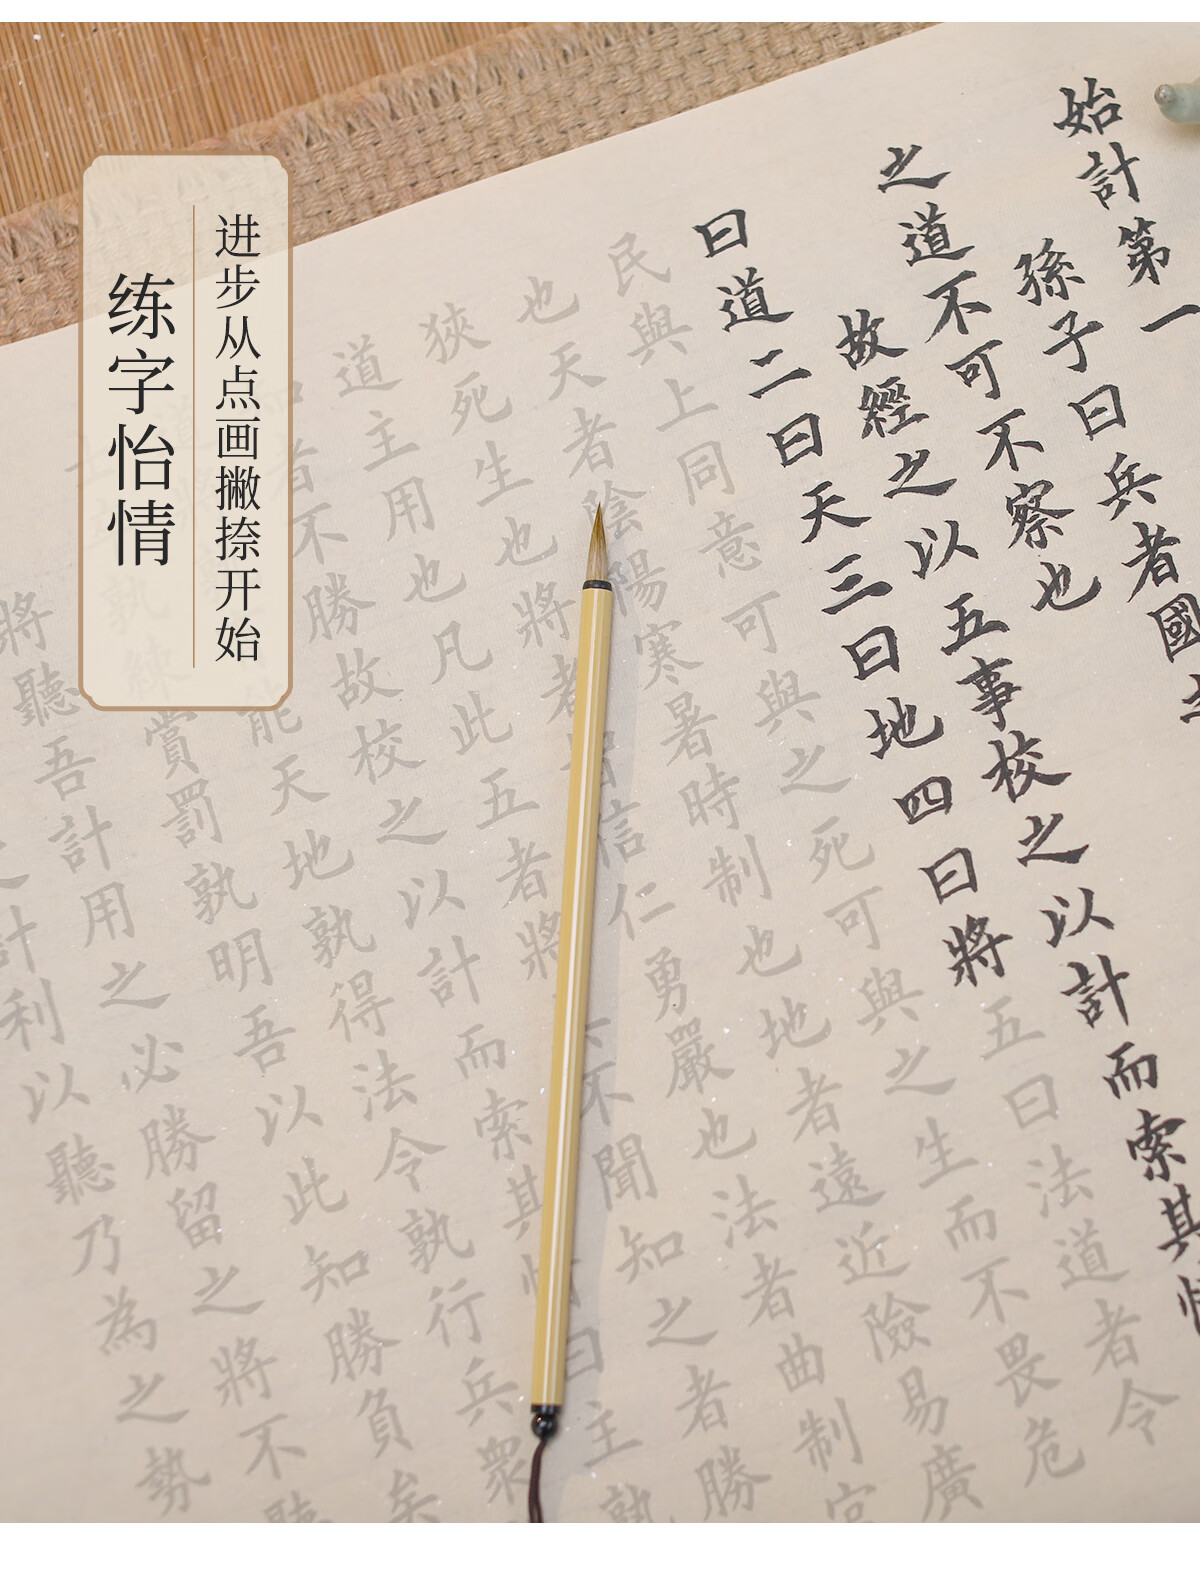 进步从点画撇捺开始
练字怡情
始計第一
孫子曰兵者國
之道不可不察也
故經之以五事校之以計而索其情
曰道二曰天三曰地四曰將五曰法道者令
民與上同意可與之死可與之生而不畏危
也天者陰陽寒暑時制也地者遠近險易廣
狹死生也將者智信仁勇嚴也法者曲制官
道主用也凡此五者將不聞知之者勝
者不勝故校之以計而索其情曰主孰
能天地孰得法令孰行兵衆
孰練賞罰孰明吾以此知勝負矣
將聽吾計用之必勝留之將不聽
計利以聽乃為之勢